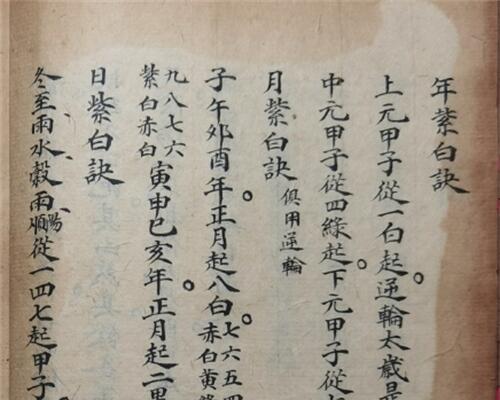 年紫白訣
上元甲子從一白起。逆輪太歲是
中元甲子從四綠起。下元甲子從
月紫白訣 俱用逆輪
子午卯酉年正月起八白。七六五四
赤白黃綠
九八七六
紫白赤白
寅申巳亥年正月起二黑
日紫白訣
冬至雨水穀雨陽順從一四七起甲子